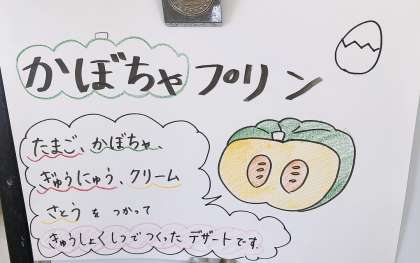 かぼちゃプリン
たまご、かぼちゃ、
ぎゅうにゅう、クリーム
さとう を つかって
きゅうしょくしつでつくった デザートです。